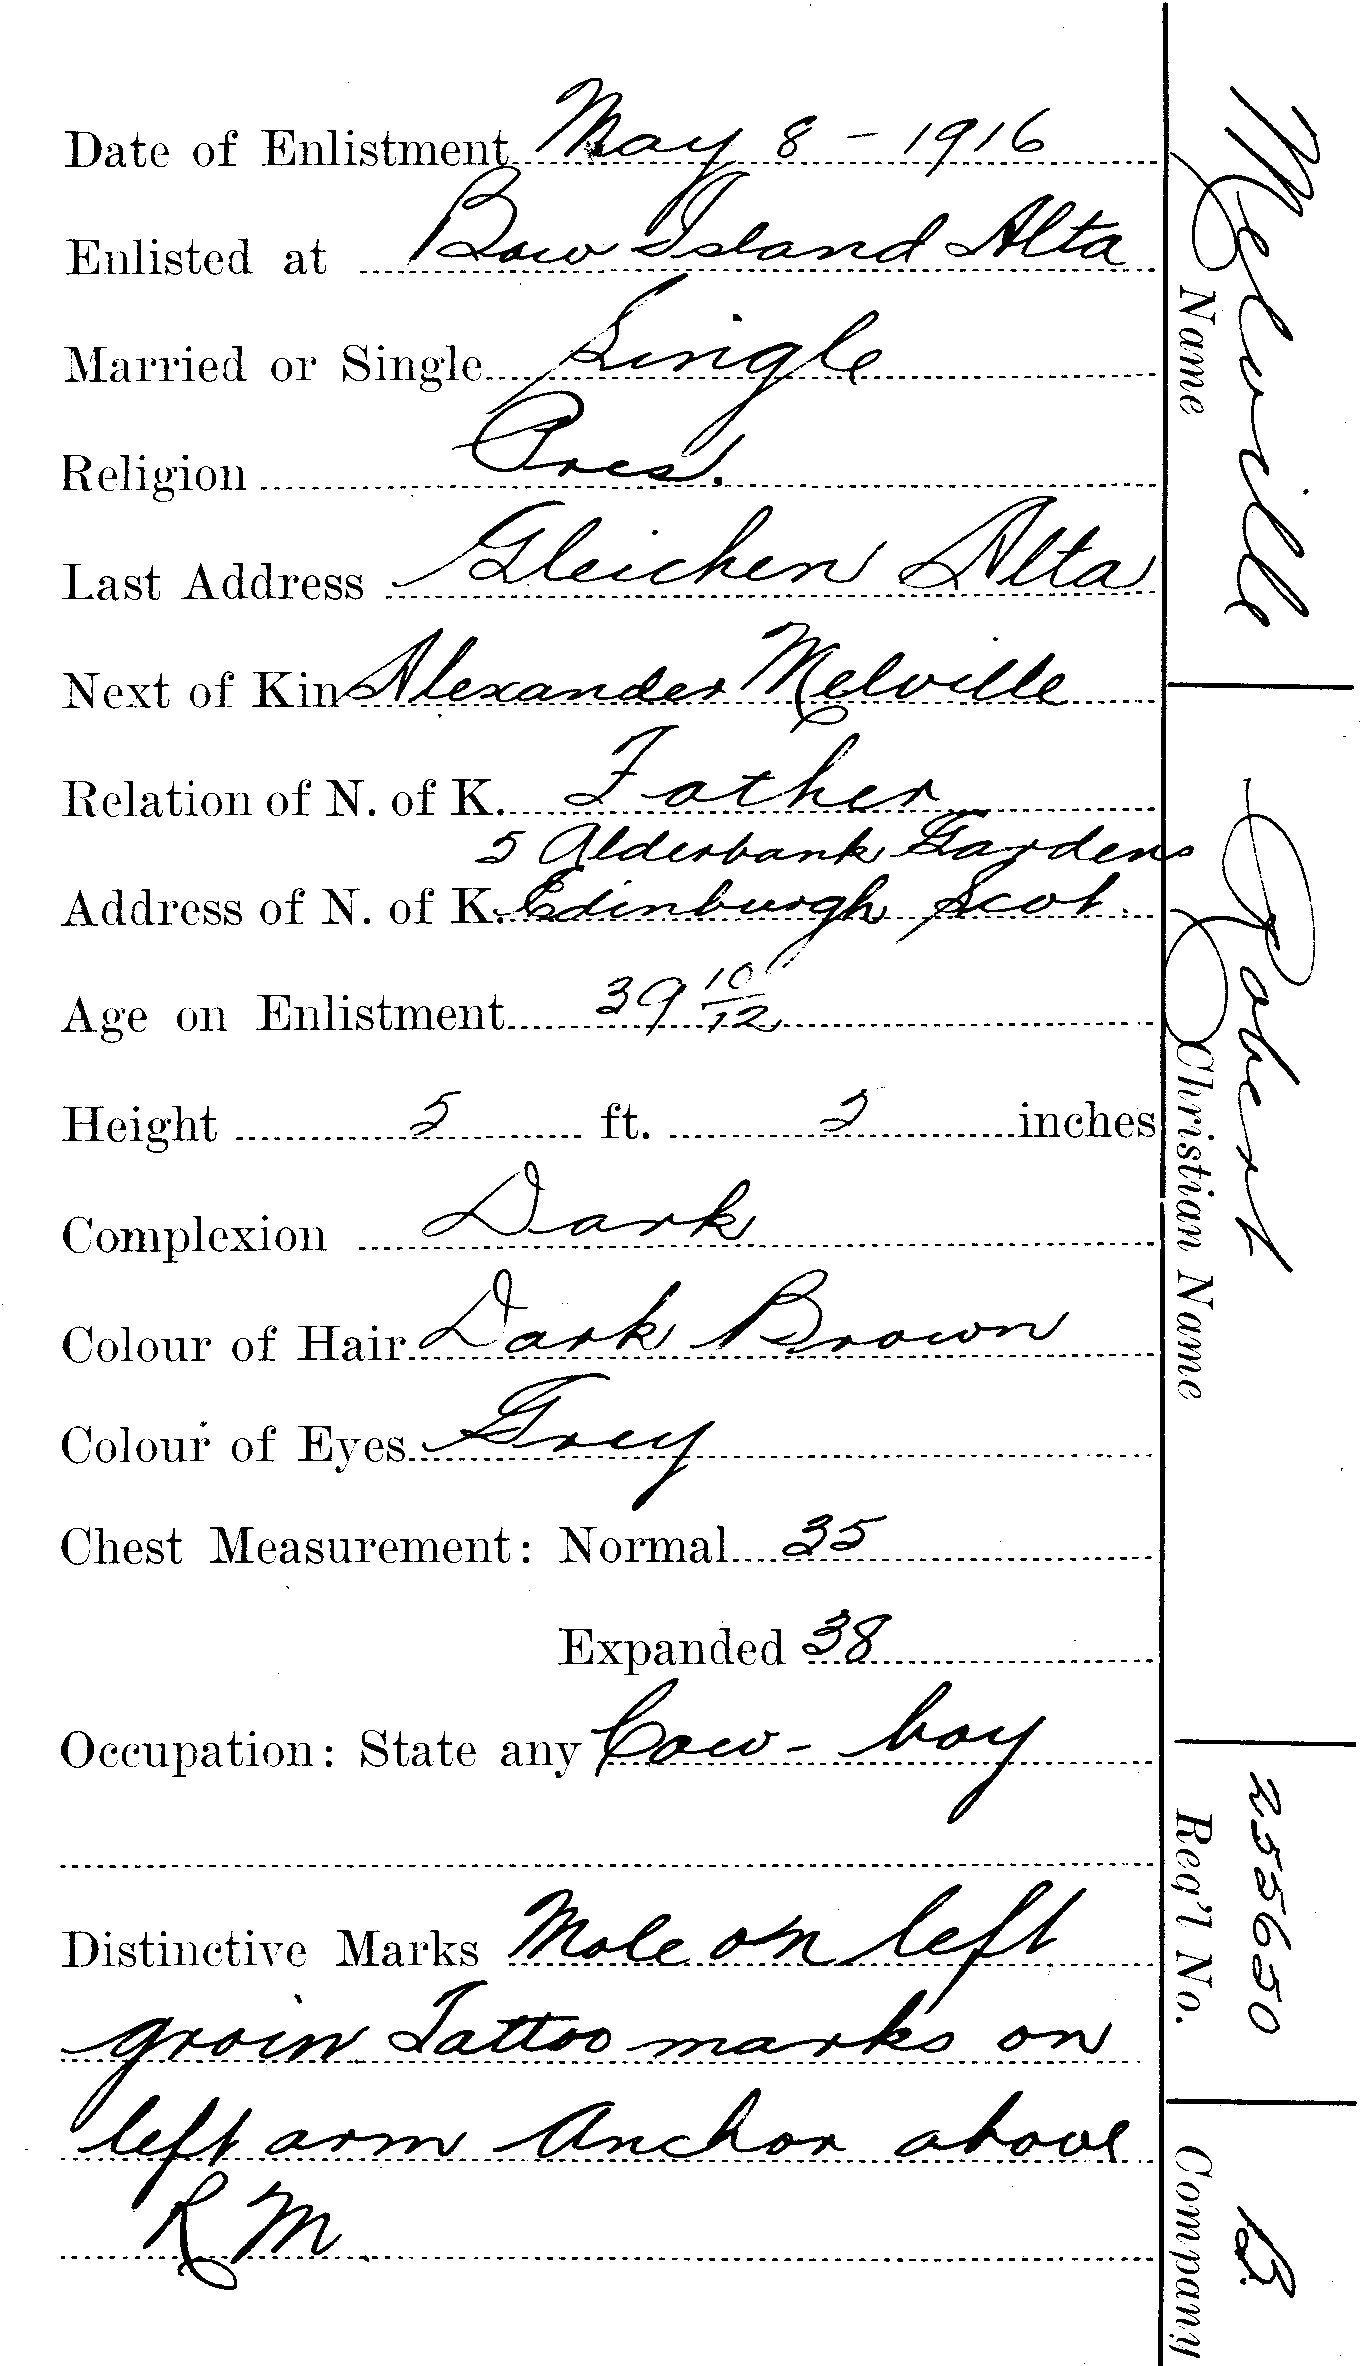 Date of Enlistment May 8 - 1916
Enlisted at Bow Island Alta
Married or Single Single
Religion Pres.
Last Address Gleichen Alta
Next of Kin Alexander Melville
Relation of N. of K. Father
5 Alderbank Gardens
Address of N. of K. Edinburgh Scot.
Age on Enlistment 39 10/12
Height 5 ft. 2 inches
Complexion Dark
Colour of Hair Dark Brown
Colour of Eyes Grey
Chest Measurement: Normal 35
Expanded 38
Occupation: State any Cow-boy
Distinctive Marks Mole on left
groin Tattoo marks on
left arm Anchor above
R M
Melville
Name
Robert
Christian Name
255650
Reg'l No.
B.
Company